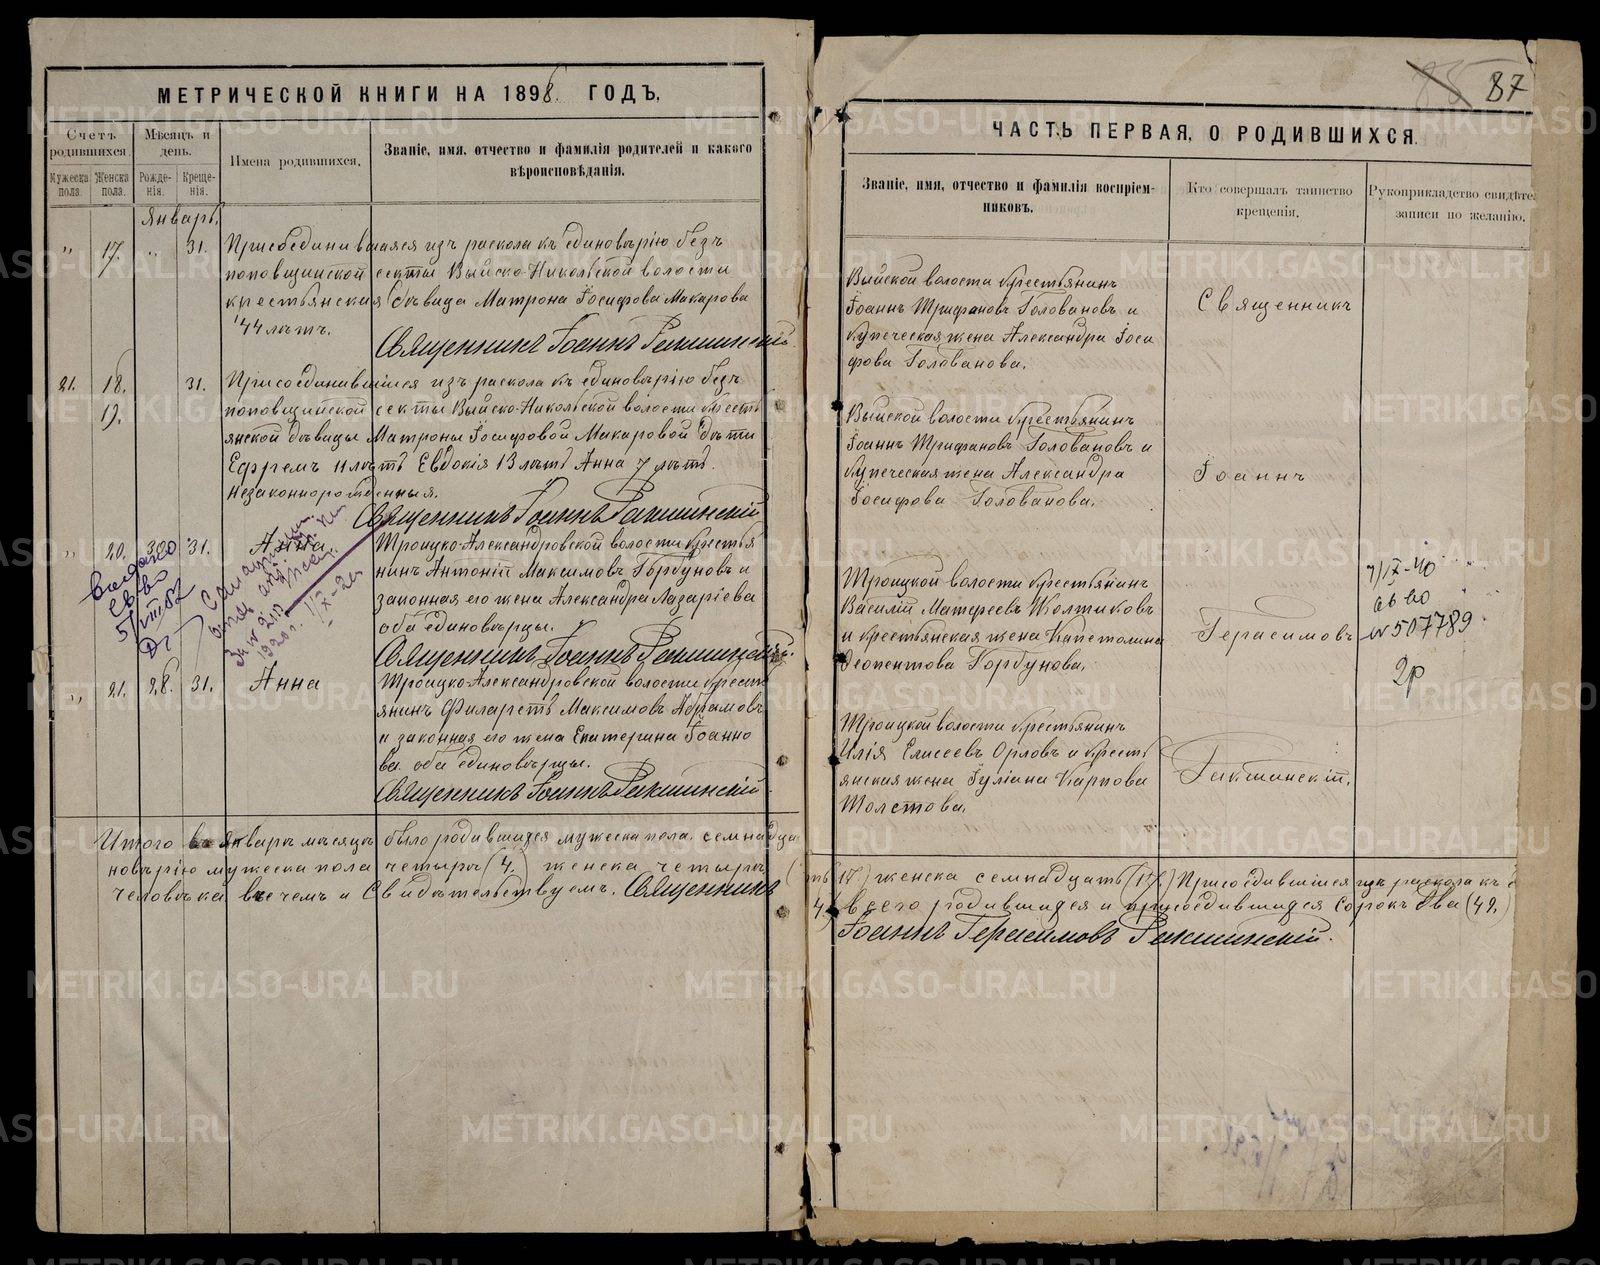 МЕТРИЧЕСКОЙ КНИГИ НА 1898 ГОДЪ,
Счетъ родившихся.
Мѣсяцъ и день.
Имена родившихся.
Званіе, имя, отчество и фамилія родителей и какого вѣроисповѣданія.
Мужеска пола.
Женска пола.
Рожденія.
Крещенія.
Январь.
" 17. " 31. Присоединившаяся изъ раскола къ единовѣрію безъ
поповщинской секты Выйско-Никольской волости
крестьянская дѣвица Матрона Іосифова Макарова
44 лѣтъ.
Священникъ Іоаннъ Гакшинскій.
21. 18. 31. Присоединившіеся изъ раскола къ единовѣрію безъ
19. поповщинской секты Выйско-Никольской волости кресть
янской дѣвицы Матроны Іосифовой Макаровой дѣти
Ефремъ 11 лѣтъ Евдокія 13 лѣтъ Анна 7 лѣтъ.
Незаконнорожденныя.
Священникъ Іоаннъ Гакшинскій
" 20. 30 31. Анна. Троицко-Александровской волости крестья
нинъ Антоній Максимовъ Горбуновъ и
законная его жена Александра Лазаріева
оба единовѣрцы.
Священникъ Іоаннъ Гакшинскій.
выдано
св-во
" 21. 28. 31. Анна Троицко-Александровской волости кресть
янинъ Филаретъ Максимовъ Абрамовъ
и законная его жена Екатерина Іоанно
ва оба единовѣрцы.
Священникъ Іоаннъ Гакшинскій.
Итого въ Январѣ мѣсяцѣ было родившихся мужеска пола семнадца
новѣрію мужеска пола четыре (4.) женска четыре (
человѣка въ чемъ и Свидѣтельствуемъ. Священникъ
87
ЧАСТЬ ПЕРВАЯ, О РОДИВШИХСЯ.
Званіе, имя, отчество и фамилія воспріемниковъ.
Кто совершалъ таинство крещенія.
Рукоприкладство свидѣте
записи по желанію.
Выйской волости крестьянинъ
Іоаннъ Трифановъ Головановъ и
купеческая жена Александра Іоси
фова Голованова.
Священникъ
Выйской волости крестьянинъ
Іоаннъ Трифановъ Головановъ и
купеческая жена Александра
Іосифова Голованова.
Іоаннъ
Троицкой волости крестьянинъ
Василій Матфеевъ Жолтиковъ
и крестьянская жена Капетолина
Феопентова Горбунова.
Герасимовъ
7/IX-40
св во
№ 507789
2р
Троицкой волости крестьянинъ
Илія Елисеевъ Орловъ и кресть
янская жена Іуліана Карпова
Толстова.
Гакшинскій.
ть 17) женска семнадцать (17.) Присоедившіеся изъ раскола къ е
4.) всего родившихся и присоедившихся сорокъ два (42.)
Іоаннъ Герасимовъ Гакшинскій.
METRIKI.GASO-URAL.RU